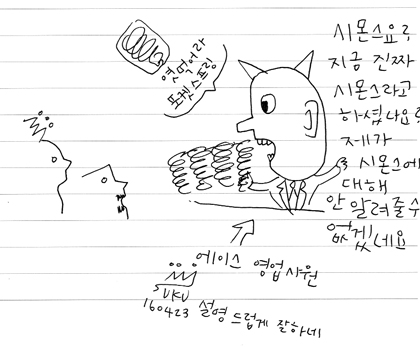 엿먹어라
포켓스프링
시몬스요?
지금 진짜
시몬스라고
하셨나요?
제가
시몬스에
대해
안 알려줄수
없겠네요
에이스 영업사원
SUKU
160423 설명 드럽게 잘하네